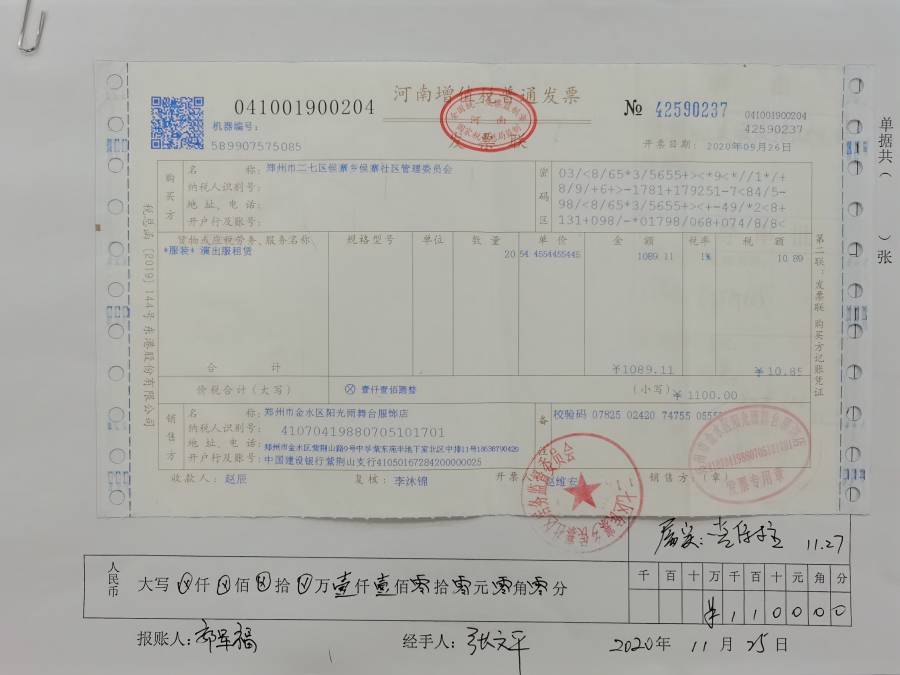 河南增值税普通发票
发票联
041001900204
№ 42590237
041001900204
42590237
机器编号:
589907575085
开票日期: 2020年09月26日
单据共( )张
税总函〔2019〕144号 东港股份有限公司
购买方
名 称: 郑州市二七区侯寨乡侯寨社区管理委员会
纳税人识别号:
地 址、电 话:
开户行及账号:
密码区
03/<8/65*3/5655+><*9<*//1*/+
8/9/+6+>-1781+179251-7<84/5-
98/<8/65*3/5655+><+-49/*2<8+
131+098/-*01798/068+074/8/8<
货物或应税劳务、服务名称 规格型号 单位 数 量 单 价 金 额 税率 税 额
*服装* 演出服租赁 20 54.4554455445 1089.11 1% 10.89
合 计 ¥1089.11 ¥10.85
价税合计(大写) ⊗ 壹仟壹佰圆整 (小写) ¥1100.00
第二联:发票联 购买方记账凭证
销售方
名 称: 郑州市金水区阳光雨舞台服饰店
纳税人识别号: 41070419880705101701
地 址、电 话:
开户行及账号: 中国建设银行紫荆山支行41050167284200000025
备
校验码 07825 02420 74755
收款人: 赵辰 复核: 李沐锦 开票人: 赵维安 销售方:(章)
发票专用章
属实: 11.27
人民币
大写 仟 佰 拾 万壹仟壹佰零拾零元零角零分
千 百 十 万 千 百 十 元 角 分
¥ 1 1 0 0 0 0
报账人: 经手人: 张文平 2020年 11月 25日